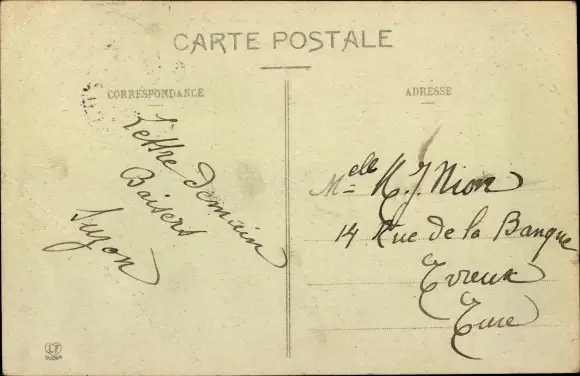 CARTE POSTALE
CORRESPONDANCE
Lettre demain
Baisers
Suzon
ADRESSE
Melle M. J. Nion
14 Rue de la Banque
Evreux
Eure
LF